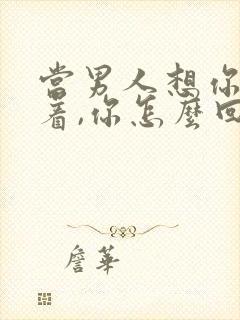 當男人想你
著,你怎麼回
詹華